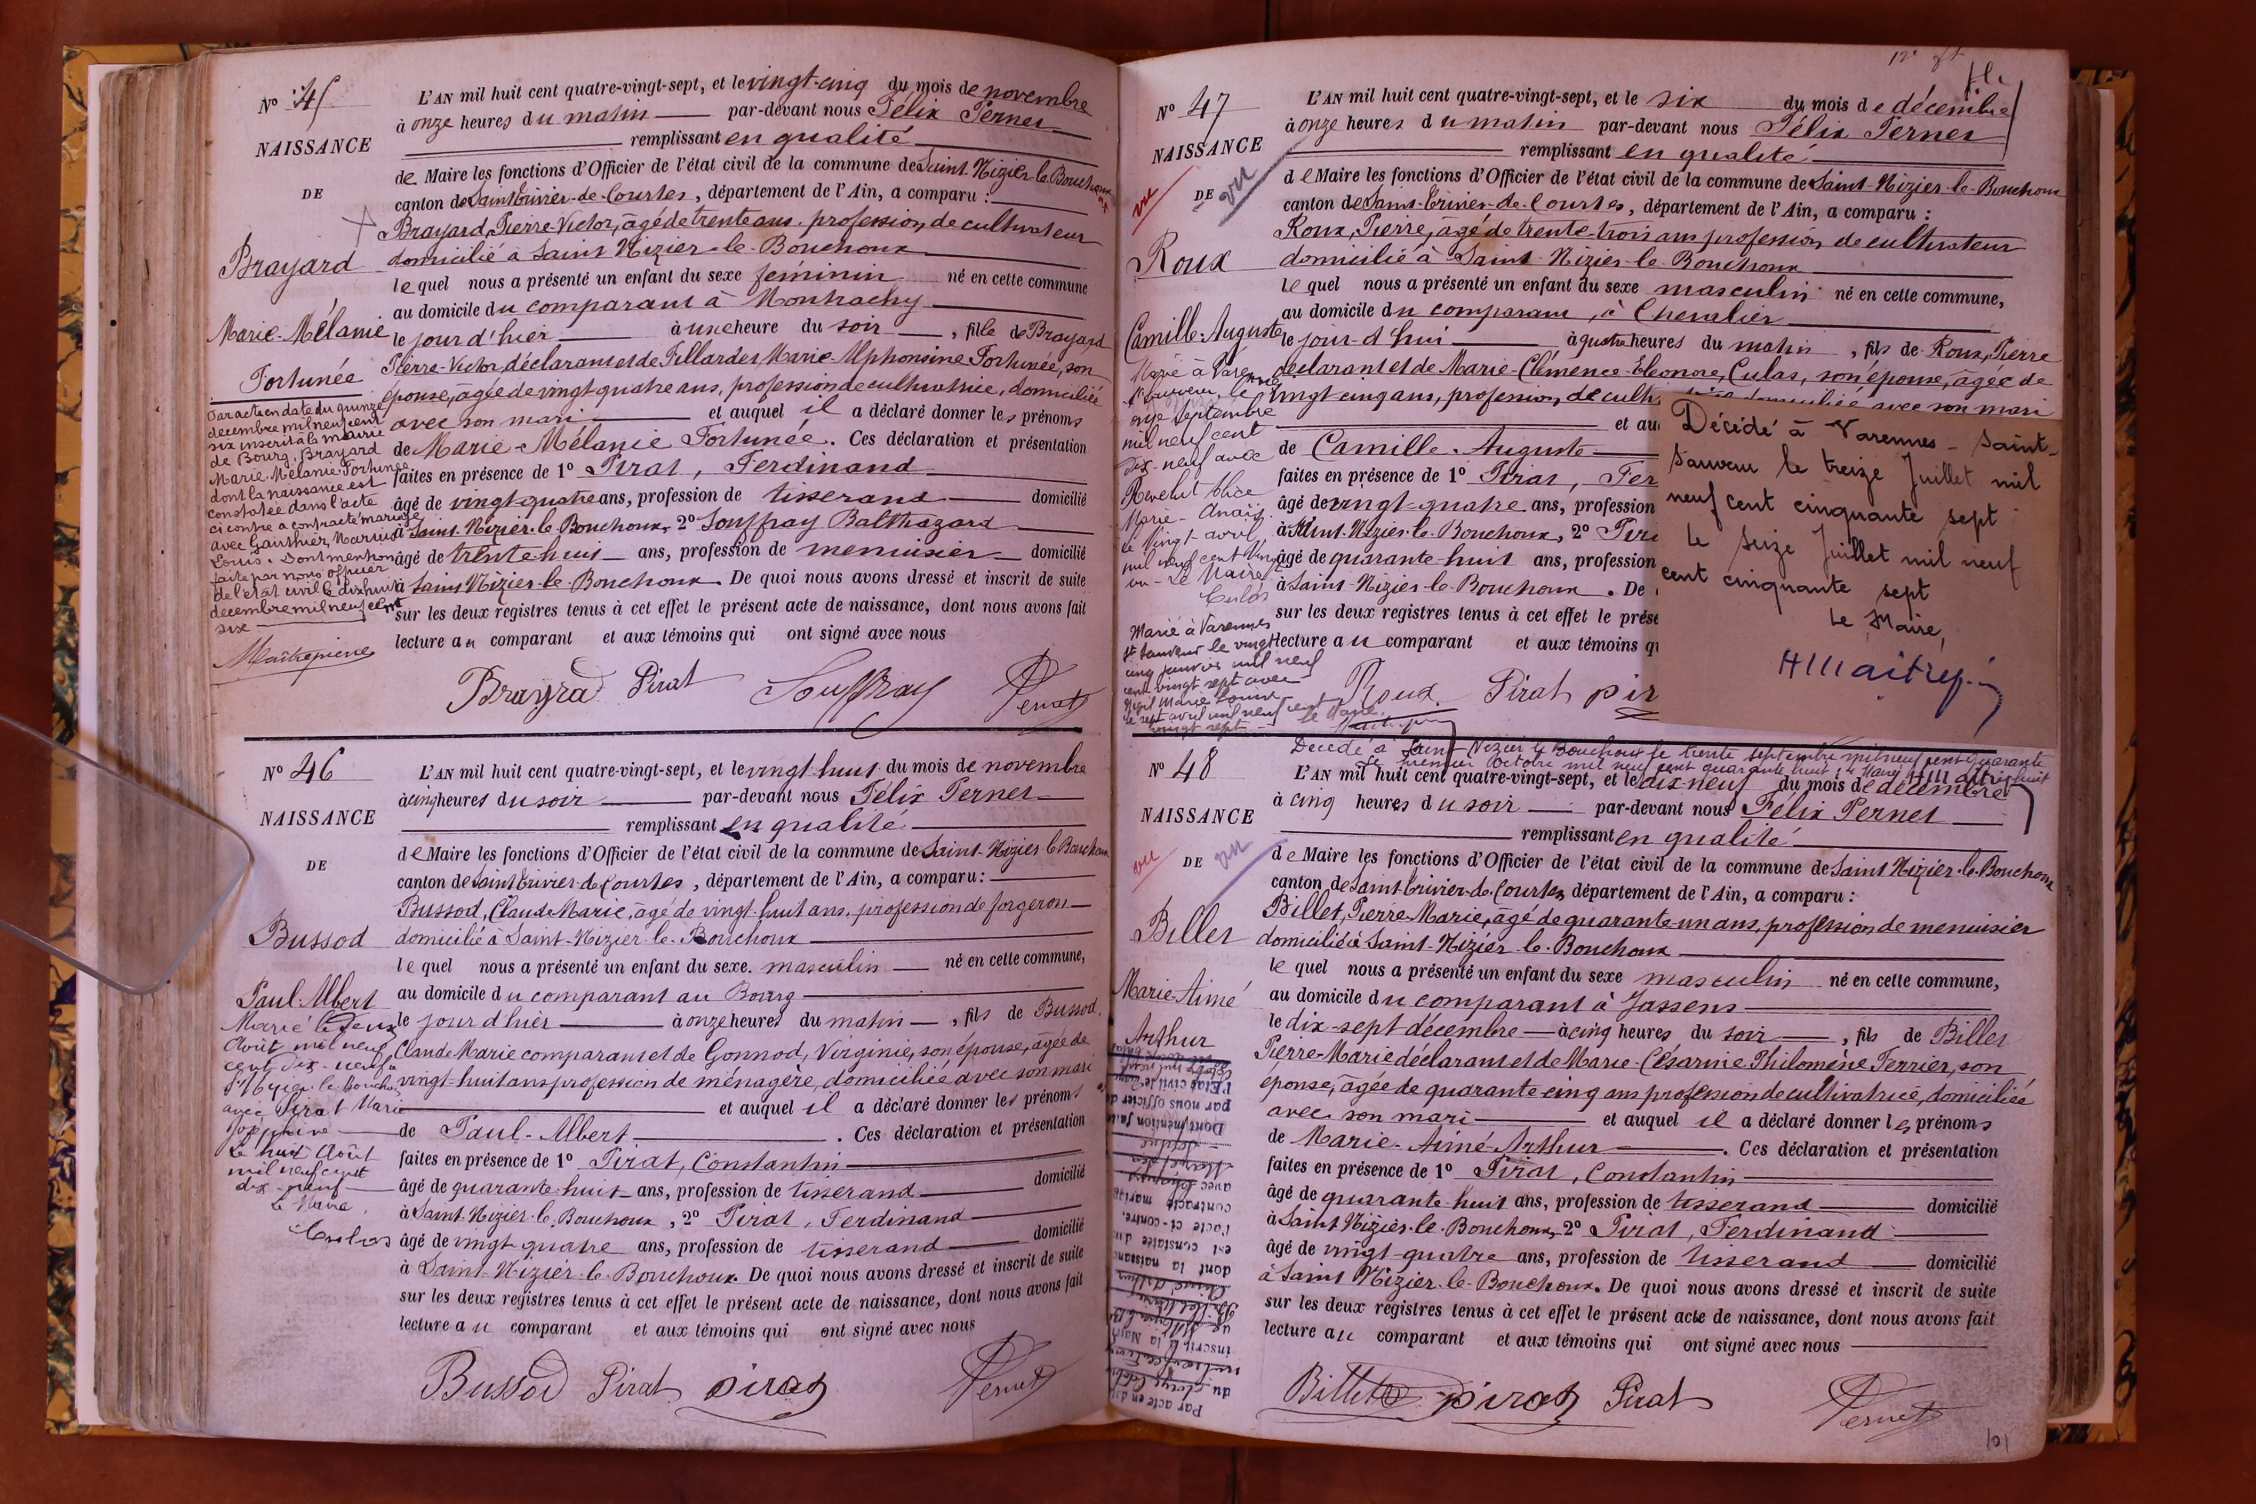 Nº 45
NAISSANCE
DE
Brayard
Marie-Mélanie
Fortunée
Par acte en date du quinze
décembre mil neuf cent
six inscrit à la mairie
de Bourg, Brayard
Marie Mélanie Fortunée
dont la naissance est
constatée dans l'acte
ci contre a contracté mariage
avec Gauthier, Marius
Louis. Dont mention
faite par nous officier
de l'état civil le dix huit
décembre mil neuf cent
six
Maîtrepierre
L'AN mil huit cent quatre-vingt-sept, et le vingt-cinq du mois de novembre
à onze heures du matin par-devant nous Félix Pernet
remplissant en qualité
de Maire les fonctions d'Officier de l'état civil de la commune de Saint-Nizier-le-Bouchoux
canton de Saint-Trivier-de-Courtes, département de l'Ain, a comparu :
Brayard, Pierre-Victor, âgé de trente ans, profession de cultivateur
domicilié à Saint Nizier-le-Bouchoux
lequel nous a présenté un enfant du sexe féminin né en cette commune
au domicile du comparant à Montrachy
le jour d'hier à une heure du soir, fille de Brayard
Pierre-Victor, déclarant et de Pillardet Marie Alphonsine Fortunée, son
épouse, âgée de vingt-quatre ans, profession de cultivatrice, domiciliée
avec son mari et auquel il a déclaré donner les prénoms
de Marie-Mélanie Fortunée. Ces déclaration et présentation
faites en présence de 1º Pirat, Ferdinand
âgé de vingt-quatre ans, profession de tisserand domicilié
à Saint-Nizier-le-Bouchoux, 2º Souffray Balthazard
âgé de trente-huit ans, profession de menuisier domicilié
à Saint Nizier-le-Bouchoux. De quoi nous avons dressé et inscrit de suite
sur les deux registres tenus à cet effet le présent acte de naissance, dont nous avons fait
lecture au comparant et aux témoins qui ont signé avec nous
Brayrd Pirat Souffray Pernet
Nº 46
NAISSANCE
DE
Bussod
Paul-Albert
Marié le deux
Août mil neuf
cent dix-neuf à
St Nizier-le-Bouchoux
avec Pirat Marie
Joséphine
Le huit Août
mil neuf cent
dix-neuf
Le Maire,
Culas
L'AN mil huit cent quatre-vingt-sept, et le vingt-huit du mois de novembre
à cinq heures du soir par-devant nous Félix Pernet
remplissant en qualité
de Maire les fonctions d'Officier de l'état civil de la commune de Saint-Nizier le Bouchoux
canton de Saint-Trivier-de-Courtes, département de l'Ain, a comparu :
Bussod, Claude Marie, âgé de vingt-huit ans, profession de forgeron
domicilié à Saint-Nizier-le-Bouchoux
lequel nous a présenté un enfant du sexe masculin né en cette commune,
au domicile du comparant au Bourg
le jour d'hier à onze heures du matin, fils de Bussod
Claude Marie comparant et de Gonnod, Virginie, son épouse, âgée de
vingt-huit ans profession de ménagère, domiciliée avec son mari
et auquel il a déclaré donner les prénoms
de Paul-Albert. Ces déclaration et présentation
faites en présence de 1º Pirat, Constantin
âgé de quarante-huit ans, profession de tisserand domicilié
à Saint-Nizier-le-Bouchoux, 2º Pirat, Ferdinand
âgé de vingt-quatre ans, profession de tisserand domicilié
à Saint-Nizier-le-Bouchoux. De quoi nous avons dressé et inscrit de suite
sur les deux registres tenus à cet effet le présent acte de naissance, dont nous avons fait
lecture au comparant et aux témoins qui ont signé avec nous
Bussod Pirat pirat Pernet
Nº 47
NAISSANCE
DE
vu
vu
Roux
Camille-Auguste
Marié à Varennes
St Sauveur, le
onze septembre
mil neuf cent
dix-neuf avec
Revelut Alice
Marie-Anaïs
Le Vingt avril
mil neuf cent vingt
un - Le Maire
Culas
Marié à Varennes
St Sauveur le vingt
cinq janvier mil neuf
cent vingt sept avec
Marie Louise
Le sept avril mil neuf cent
vingt sept
Le Maire
L'AN mil huit cent quatre-vingt-sept, et le six du mois de décembre
à onze heures du matin par-devant nous Félix Pernet
remplissant en qualité
de Maire les fonctions d'Officier de l'état civil de la commune de Saint-Nizier-le-Bouchoux
canton de Saint-Trivier-de-Courtes, département de l'Ain, a comparu :
Roux, Pierre, âgé de trente-trois ans profession de cultivateur
domicilié à Saint-Nizier-le-Bouchoux
lequel nous a présenté un enfant du sexe masculin né en cette commune,
au domicile du comparant, à Chevalier
le jour d'hui à quatre heures du matin, fils de Roux, Pierre
déclarant et de Marie-Clémence-Eléonore, Culas, son épouse, âgée de
vingt-cinq ans, profession de domiciliée avec son mari
et au
de Camille-Auguste
faites en présence de 1º Pirat, Fer
âgé de vingt-quatre ans, profession
à Saint-Nizier-le-Bouchoux, 2º Pir
âgé de quarante-huit ans, profession
à Saint-Nizier-le-Bouchoux. De
sur les deux registres tenus à cet effet le prése
lecture au comparant et aux témoins q
Roux Pirat pir
Décédé à Varennes-Saint-
Sauveur le treize Juillet mil
neuf cent cinquante sept
Le seize Juillet mil neuf
cent cinquante sept
Le Maire,
HMaitrep
Nº 48
NAISSANCE
DE
vu
vu
Billet
Marie-Aimé
Arthur
Décédé à Saint-Nizier le Bouchoux le trente septembre mil neuf cent quarante huit
Le premier Octobre mil neuf cent quarante huit Le Maire HMaitrep
L'AN mil huit cent quatre-vingt-sept, et le dix-neuf du mois de décembre
à cinq heures du soir par-devant nous Félix Pernet
remplissant en qualité
de Maire les fonctions d'Officier de l'état civil de la commune de Saint Nizier-le-Bouchoux
canton de Saint-Trivier-de-Courtes, département de l'Ain, a comparu :
Billet, Pierre-Marie, âgé de quarante-un ans, profession de menuisier
domicilié à Saint-Nizier-le-Bouchoux
lequel nous a présenté un enfant du sexe masculin né en cette commune,
au domicile du comparant à Jassens
le dix-sept décembre à cinq heures du soir, fils de Billet
Pierre-Marie déclarant et de Marie-Césarine Philomène Perrier, son
épouse, âgée de quarante cinq ans profession de cultivatrice, domiciliée
avec son mari et auquel il a déclaré donner les prénoms
de Marie-Aimé-Arthur. Ces déclaration et présentation
faites en présence de 1º Pirat, Constantin
âgé de quarante-huit ans, profession de tisserand domicilié
à Saint Nizier-le-Bouchoux, 2º Pirat, Ferdinand
âgé de vingt-quatre ans, profession de tisserand domicilié
à Saint Nizier-le-Bouchoux. De quoi nous avons dressé et inscrit de suite
sur les deux registres tenus à cet effet le présent acte de naissance, dont nous avons fait
lecture au comparant et aux témoins qui ont signé avec nous
Billet pirat Pirat Pernet
Par acte en da
du
inscrit à la Mai
de
Billet Marie
Aimé Arthur
dont la naissanc
est constatée dans
l'acte ci-contre,
contracté mariage
avec
Dont mention faite
par nous officier de
l'État civil le
101